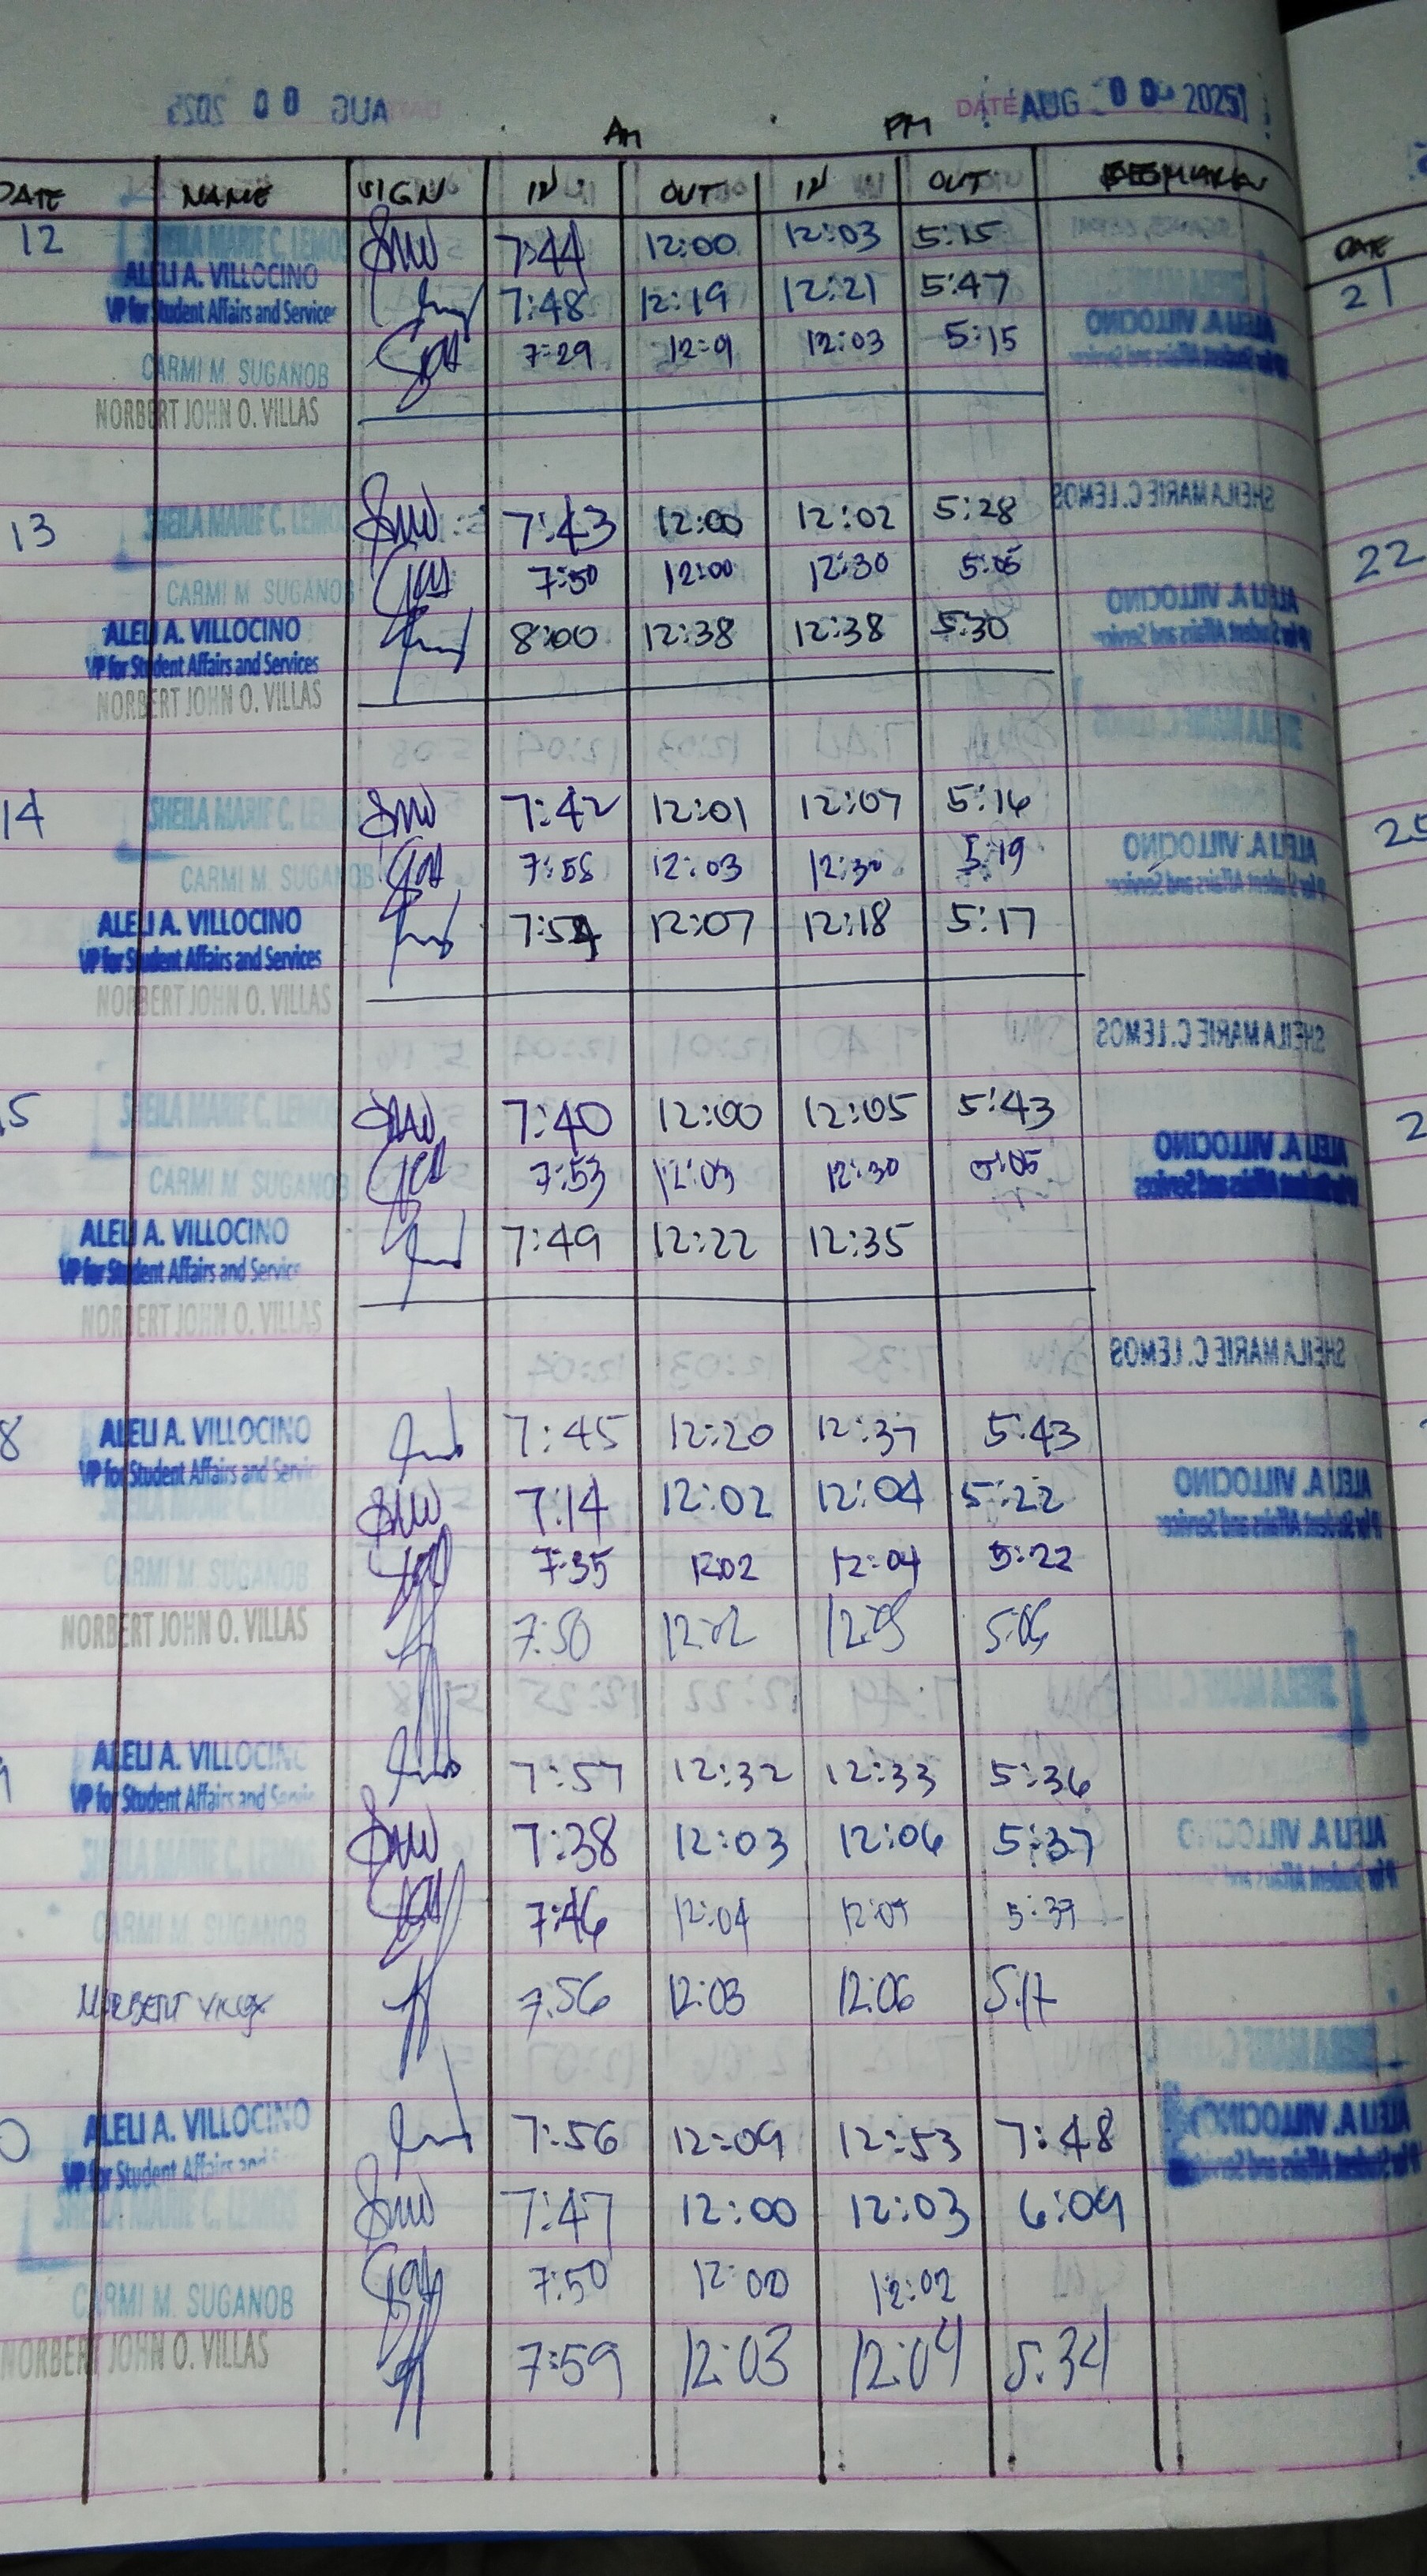 DATE AUG 00 2025
AM PM
DATE NAME SIGN IN OUT IN OUT REMARKS
12 SHEILA MARIE C. LEMOS 7:44 12:00 12:03 5:15
ALELI A. VILLOCINO 7:48 12:19 12:21 5:47
VP for Student Affairs and Services
CARMI M. SUGANOB 7:29 12:01 12:03 5:15
NORBERT JOHN O. VILLAS
13 SHEILA MARIE C. LEMOS 7:43 12:00 12:02 5:28
CARMI M. SUGANOB 7:50 12:00 12:30 5:05
ALELI A. VILLOCINO 8:00 12:38 12:38 5:30
VP for Student Affairs and Services
NORBERT JOHN O. VILLAS
14 SHEILA MARIE C. LEMOS 7:42 12:01 12:07 5:16
CARMI M. SUGANOB 7:55 12:03 12:30 5:19
ALELI A. VILLOCINO 7:54 12:07 12:18 5:17
VP for Student Affairs and Services
NORBERT JOHN O. VILLAS
5 SHEILA MARIE C. LEMOS 7:40 12:00 12:05 5:43
CARMI M. SUGANOB 7:53 12:03 12:30 5:05
ALELI A. VILLOCINO 7:49 12:22 12:35
VP for Student Affairs and Service
NORBERT JOHN O. VILLAS
8 ALELI A. VILLOCINO 7:45 12:20 12:37 5:43
VP for Student Affairs and Servic
SHEILA MARIE C. LEMOS 7:14 12:02 12:04 5:22
CARMI M. SUGANOB 7:35 12:02 12:04 5:22
NORBERT JOHN O. VILLAS 7:50 12:02 12:05 5:05
ALELI A. VILLOCINO 7:57 12:32 12:33 5:36
VP for Student Affairs and Servic
SHEILA MARIE C. LEMOS 7:38 12:03 12:06 5:37
CARMI M. SUGANOB 7:46 12:04 12:07 5:37
7:56 12:03 12:06 5:17
0 ALELI A. VILLOCINO 7:56 12:09 12:53 7:48
VP for Student Affairs and
SHEILA MARIE C. LEMOS 7:47 12:00 12:03 6:09
CARMI M. SUGANOB 7:50 12:00 12:02
NORBERT JOHN O. VILLAS 7:59 12:03 12:04 5:34
DATE
21
22